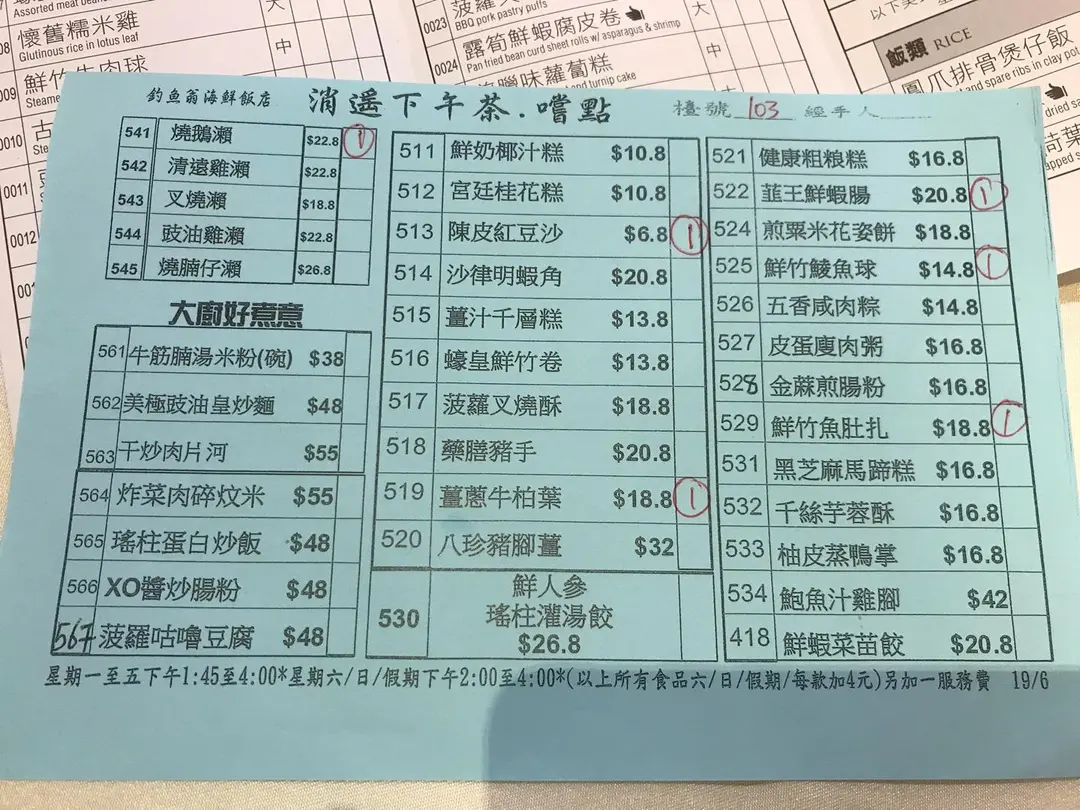 Assorted meat
懷舊糯米雞
Glutinous rice in lotus leaf
中
鮮竹牛肉球
Steame
009
0010
0011
0012
大
0023
菠蘿
BBQ pork pastry puffs
露筍鮮蝦腐皮卷
Pan fried bean curd sheet rolls w/ asparagus & shrimp
0024
中
臘味蘿蔔糕
and turnip cake
飯類 RICE
鳳爪排骨煲仔飯
and spare ribs in clay pot
釣魚翁海鮮飯店
消遥下午茶.嚐點
檯號 103 經手人
541 燒鵝瀨 $22.8 1
542 清遠雞瀨 $22.8
543 叉燒瀨 $18.8
544 豉油雞瀨 $22.8
545 燒腩仔瀨 $26.8
大廚好煮意
561 牛筋腩湯米粉(碗) $38
562 美極豉油皇炒麵 $48
563 干炒肉片河 $55
564 炸菜肉碎炆米 $55
565 瑤柱蛋白炒飯 $48
566 XO醬炒腸粉 $48
567 菠羅咕嚕豆腐 $48
511 鮮奶椰汁糕 $10.8
512 宮廷桂花糕 $10.8
513 陳皮紅豆沙 $6.8 1
514 沙律明蝦角 $20.8
515 薑汁千層糕 $13.8
516 蠔皇鮮竹卷 $13.8
517 菠蘿叉燒酥 $18.8
518 藥膳豬手 $20.8
519 薑蔥牛柏葉 $18.8 1
520 八珍豬腳薑 $32
530 鮮人參
瑤柱灌湯餃
$26.8
521 健康粗粮糕 $16.8
522 韮王鮮蝦腸 $20.8 1
524 煎粟米花姿餅 $18.8
525 鮮竹鯪魚球 $14.8 1
526 五香咸肉粽 $14.8
527 皮蛋廋肉粥 $16.8
528 金蔴煎腸粉 $16.8
529 鮮竹魚肚扎 $18.8 1
531 黑芝麻馬蹄糕 $16.8
532 千絲芋蓉酥 $16.8
533 柚皮蒸鴨掌 $16.8
534 鮑魚汁雞腳 $42
418 鮮蝦菜苗餃 $20.8
星期一至五下午1:45至4:00*星期六/日/假期下午2:00至4:00*(以上所有食品六/日/假期/每款加4元)另加一服務費 19/6